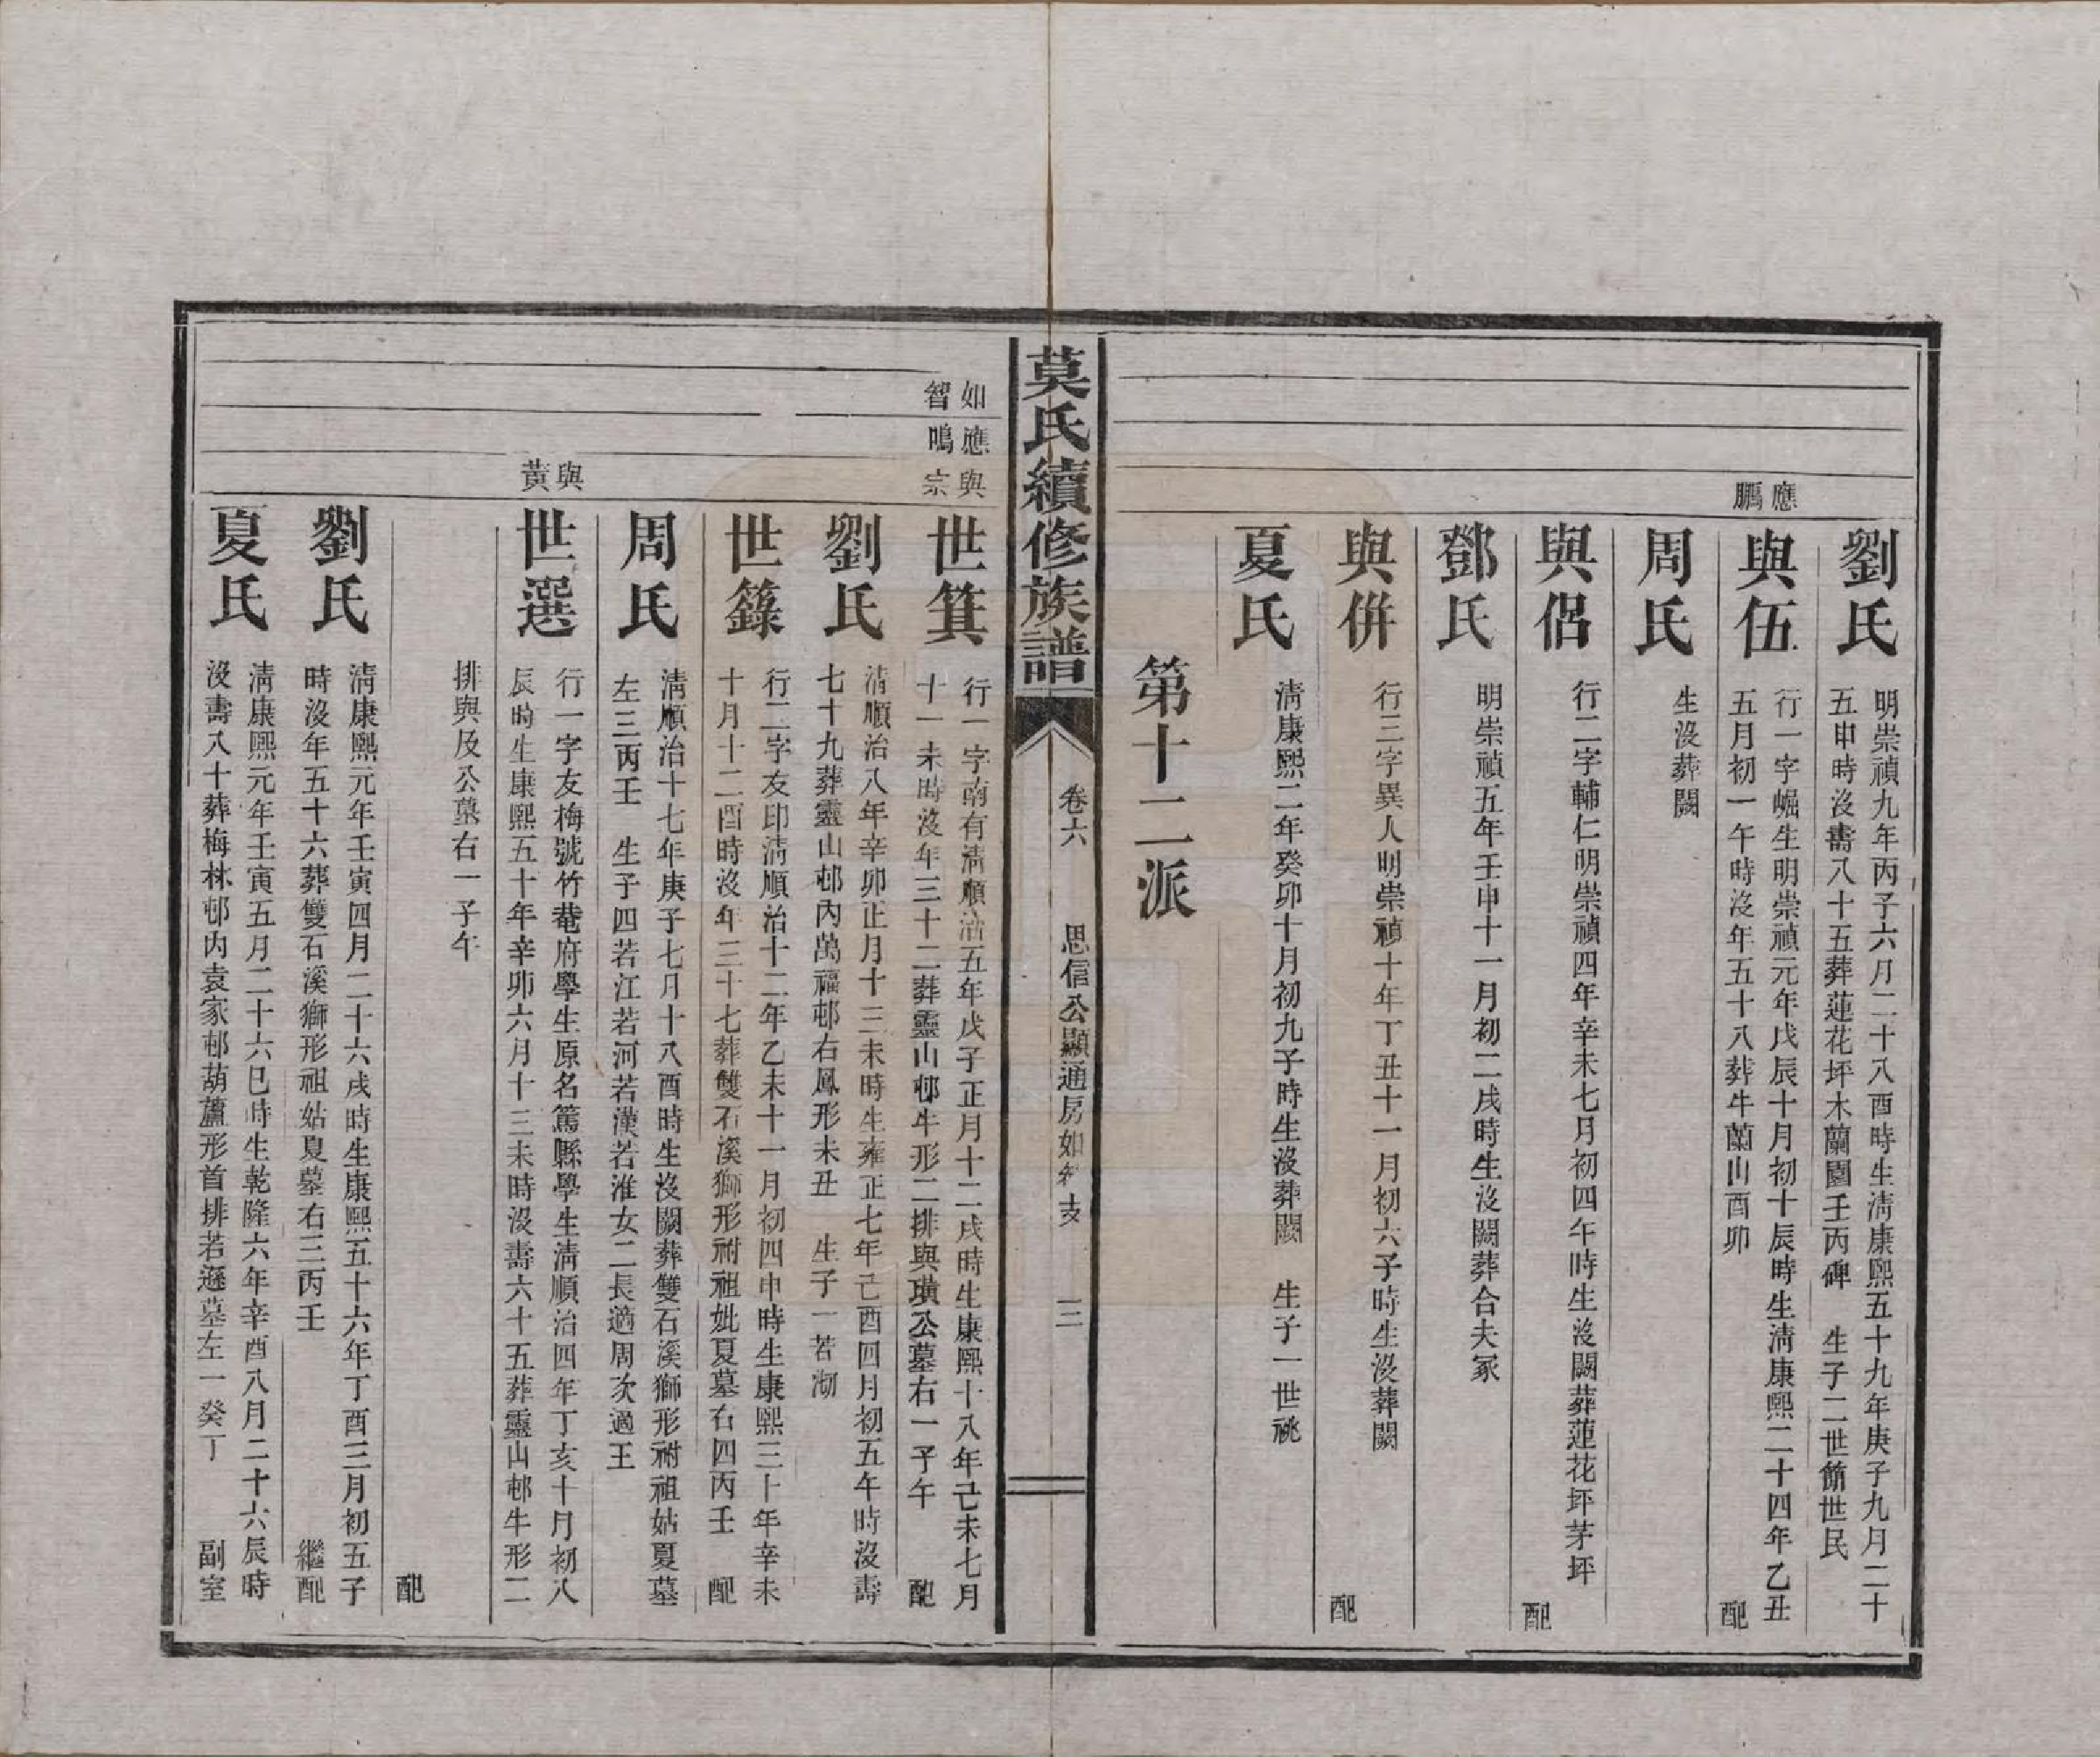 劉氏
明崇禎九年丙子六月二十八酉時生淸康熙五十九年庚子九月二十
五申時沒壽八十五葬蓮花坪木蘭園壬丙碑　生子二世簡世民
應鵬
與伍
行一字崛生明崇禎元年戊辰十月初十辰時生淸康熙二十四年乙丑
五月初一午時沒年五十八葬牛蘭山酉卯　配
周氏
生沒葬闕
與侶
行二字輔仁明崇禎四年辛未七月初四午時生沒闕葬蓮花坪茅坪
配
鄧氏
明崇禎五年壬申十一月初二戌時生沒闕葬合夫冢
與併
行三字異人明崇禎十年丁丑十一月初六子時生沒葬闕
配
夏氏
淸康熙二年癸卯十月初九子時生沒葬闕　生子一世祧
第十二派
莫氏續修族譜
卷六
思信公顯通房如智支
三
如智
應鳴
與宗
世箕
行一字南有淸順治五年戊子正月十二戌時生康熙十八年己未七月
十一未時沒年三十二葬靈山邨牛形二排與璜公墓右一子午　配
劉氏
淸順治八年辛卯正月十三未時生雍正七年己酉四月初五午時沒壽
七十九葬靈山邨內萬福邨右鳳形未丑　生子一若湖
世籙
行二字友印淸順治十二年乙未十一月初四申時生康熙三十年辛未
十月十二酉時沒年三十七葬雙石溪獅形祔祖妣夏墓右四丙壬　配
周氏
淸順治十七年庚子七月十八酉時生沒闕葬雙石溪獅形祔祖姑夏墓
左三丙壬　生子四若江若河若漢若淮女二長適周次適王
與黃
世選
行一字友梅號竹菴府學生原名篤縣學生淸順治四年丁亥十月初八
辰時生康熙五十年辛卯六月十三未時沒壽六十五葬靈山邨牛形二
排與及公墓右一子午
配
劉氏
淸康熙元年壬寅四月二十六戌時生康熙五十六年丁酉三月初五子
時沒年五十六葬雙石溪獅形祖姑夏墓右三丙壬　繼配
夏氏
淸康熙元年壬寅五月二十六巳時生乾隆六年辛酉八月二十六辰時
沒壽八十葬梅林邨內袁家邨葫蘆形首排若遜墓左一癸丁　副室